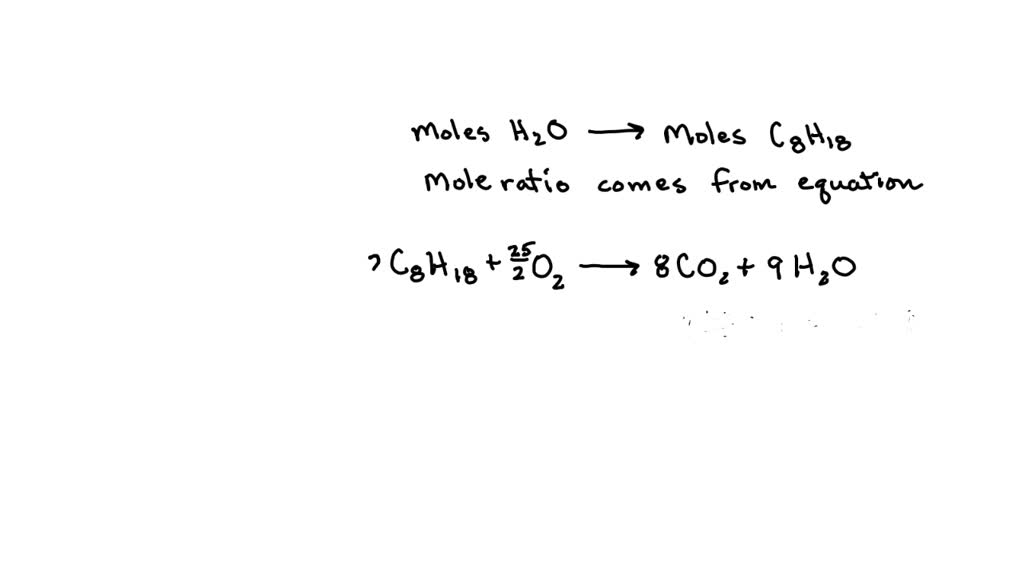 moles H₂O → Moles C₈H₁₈
Mole ratio comes from equation
C₈H₁₈ + 25/2 O₂ → 8CO₂ + 9H₂O